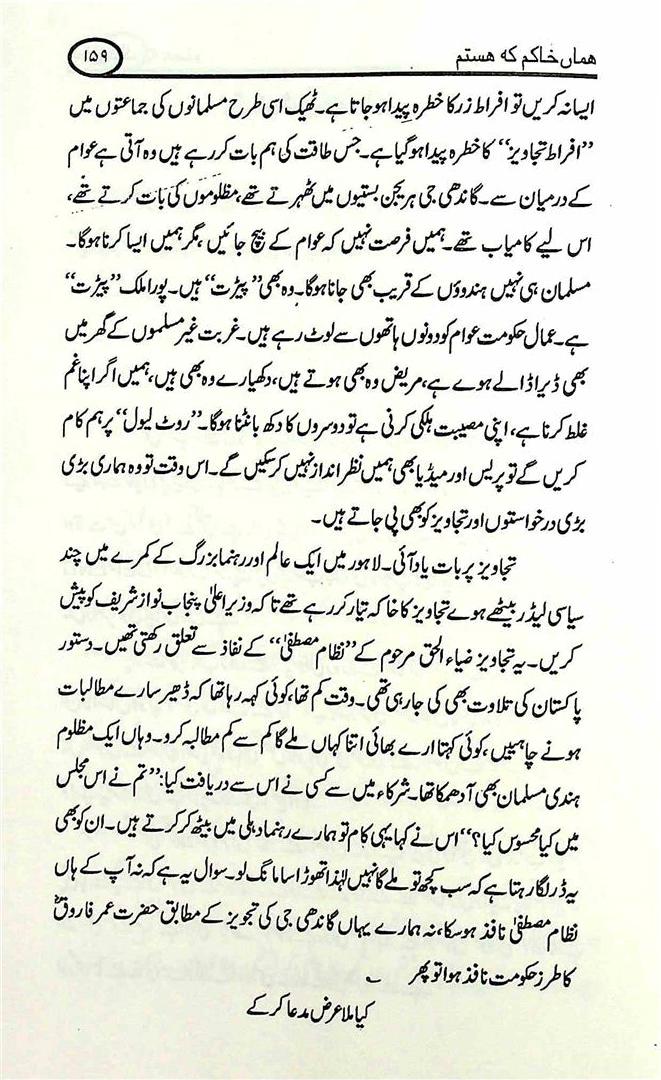 ۱۵۹
ھماں خاکم کہ ھستم
ایسا نہ کریں تو افراط زر کا خطرہ پیدا ہوجاتا ہے۔ ٹھیک اسی طرح مسلمانوں کی جماعتوں میں
”افراط تجاویز“ کا خطرہ پیدا ہوگیا ہے۔ جس طاقت کی ہم بات کر رہے ہیں وہ آتی ہے عوام
کے درمیان سے۔ گاندھی جی ہریجن بستیوں میں ٹھہرتے تھے، مظلوموں کی بات کرتے تھے،
اس لیے کامیاب تھے۔ ہمیں فرصت نہیں کہ عوام کے بیچ جائیں، مگر ہمیں ایسا کرنا ہوگا۔
مسلمان ہی نہیں ہندوؤں کے قریب بھی جانا ہوگا۔ وہ بھی ”پیڑت“ ہیں۔ پورا ملک ”پیڑت“
ہے۔ عمال حکومت عوام کو دونوں ہاتھوں سے لوٹ رہے ہیں۔ غربت غیر مسلموں کے گھر میں
بھی ڈیرا ڈالے ہوے ہے، مریض وہ بھی ہوتے ہیں، دکھیارے وہ بھی ہیں، ہمیں اگر اپنا غم
غلط کرنا ہے، اپنی مصیبت ہلکی کرنی ہے تو دوسروں کا دکھ بانٹنا ہوگا۔ ”روٹ لیول“ پر ہم کام
کریں گے تو پریس اور میڈیا بھی ہمیں نظر انداز نہیں کرسکیں گے۔ اس وقت تو وہ ہماری بڑی
بڑی درخواستوں اور تجاویز کو بھی پی جاتے ہیں۔
تجاویز پر بات یاد آئی۔ لاہور میں ایک عالم اور رہنما بزرگ کے کمرے میں چند
سیاسی لیڈر بیٹھے ہوے تجاویز کا خاکہ تیار کر رہے تھے تاکہ وزیر اعلیٰ پنجاب نواز شریف کو پیش
کریں۔ یہ تجاویز ضیاء الحق مرحوم کے ”نظام مصطفیٰ“ کے نفاذ سے تعلق رکھتی تھیں۔ دستور
پاکستان کی تلاوت بھی کی جارہی تھی۔ وقت کم تھا، کوئی کہہ رہا تھا کہ ڈھیر سارے مطالبات
ہونے چاہییں، کوئی کہتا ارے بھائی اتنا کہاں ملے گا کم سے کم مطالبہ کرو۔ وہاں ایک مظلوم
ہندی مسلمان بھی آدھمکا تھا۔ شرکاء میں سے کسی نے اس سے دریافت کیا: ”تم نے اس مجلس
میں کیا محسوس کیا؟“ اس نے کہا یہی کام تو ہمارے رہنما دہلی میں بیٹھ کر کرتے ہیں۔ ان کو بھی
یہ ڈر لگا رہتا ہے کہ سب کچھ تو ملے گا نہیں لہٰذا تھوڑا سا مانگ لو۔ سوال یہ ہے کہ نہ آپ کے ہاں
نظام مصطفیٰ نافذ ہوسکا، نہ ہمارے یہاں گاندھی جی کی تجویز کے مطابق حضرت عمر فاروقؓ
کا طرز حکومت نافذ ہوا تو پھر ؎
کیا ملا عرض مدعا کر کے